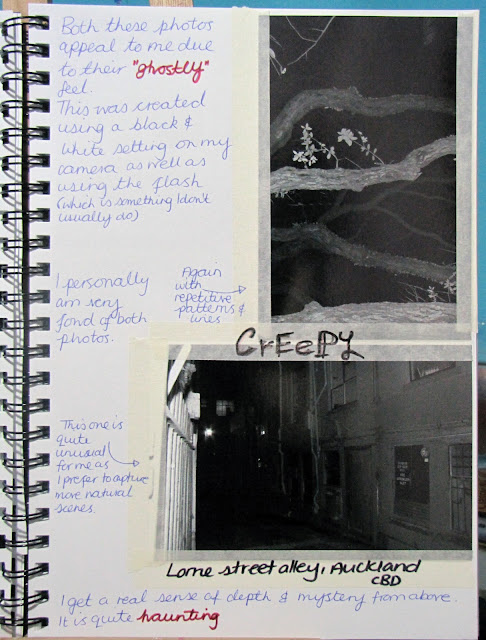 Both these photos
appeal to me due
to their "ghostly"
feel.
This was created
using a black &
white setting on my
camera as well as
using the flash
(which is something I don't
usually do)
I personally
am very
fond of both
photos.
Again
with
repetitive
patterns &
lines
CrEePY
This one is
quite
unusual
for me as
I prefer to capture
more natural
scenes.
Lorne street alley, Auckland
CBD
I get a real sense of depth & mystery from above.
It is quite haunting